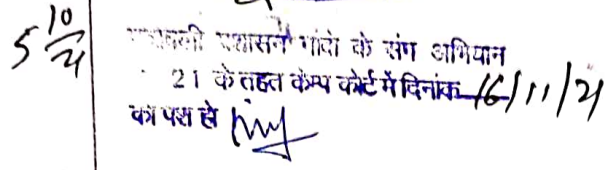 5 10/21
पत्रावली प्रशासन गांवो के संग अभियान
21 के तहत केम्प कोर्ट में दिनांक 16/11/21
को पेश हो